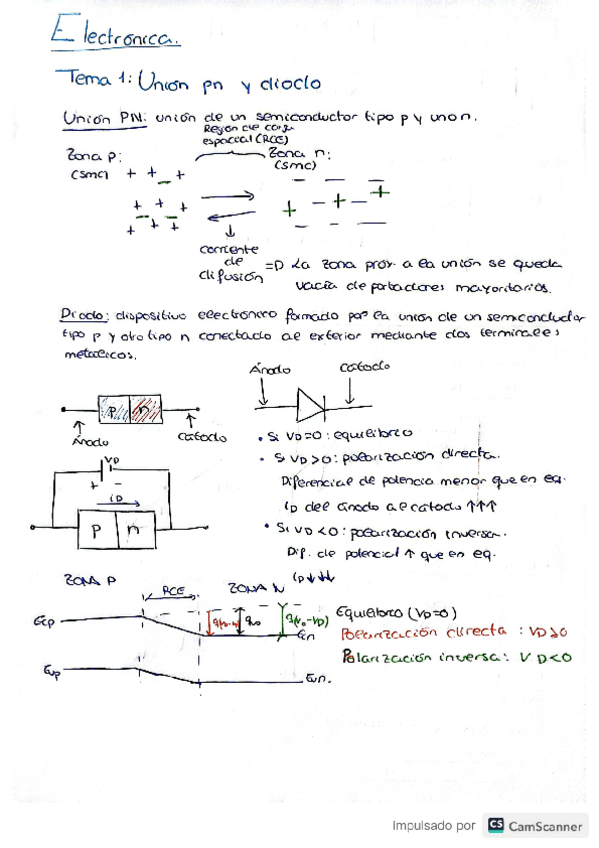 Electrónica.
Tema 1: Unión pn y diodo
Unión PN: unión de un semiconductor tipo p y uno n.
Región de carga
espacial (RCE)
Zona p:
(smc)
Zona n:
(smc)
+ + - +
- - -
+ + +
- -
+ + +
+ - + - +
- - -
corriente
de
difusión
=D La zona próx. a la unión se queda
vacía de portadores mayoritarios.
Diodo: dispositivo electrónico formado por la unión de un semiconductor
tipo p y otro tipo n conectado al exterior mediante dos terminales
metálicos.
Ánodo
Cátodo
p n
Ánodo
Cátodo
• Si VD=0: equilibrio
• Si VD>0: polarización directa.
Diferencial de potencia menor que en eq.
iD del ánodo al cátodo ↑↑↑
• Si VD<0: polarización inversa.
Dif. de potencial ↑ que en eq.
iD↓↓↓
VD
+ -
iD
P n
ZONA P
RCE
ZONA N
Ecp
qVo
q(Vo-VD)
Ecn
Equilibrio (VD=0)
Polarización directa: VD>0
Polarización inversa: VD<0
Evp
Evn.
Impulsado por CS CamScanner